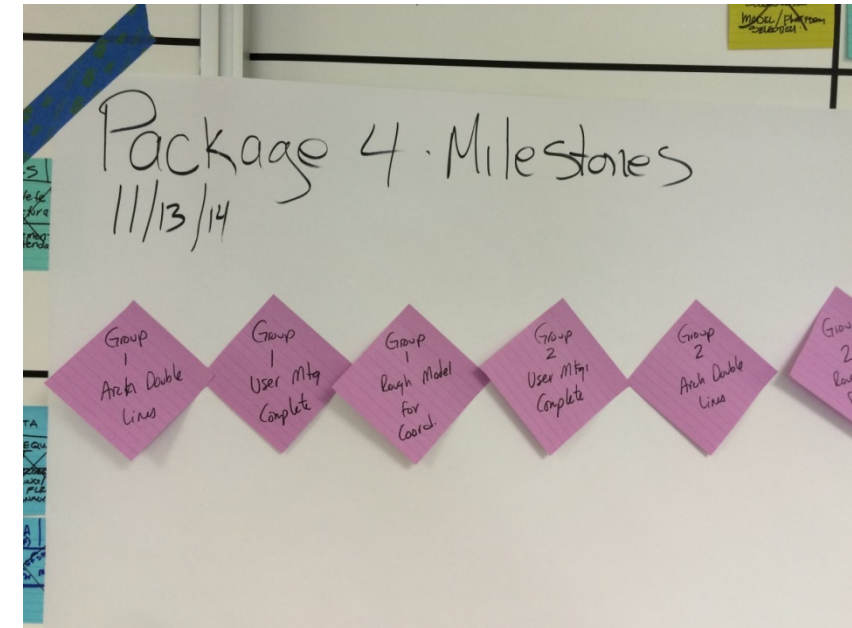 MODEL/PLATFORM
SELECTION
Package 4 · Milestones
11/13/14
Group
1
Arch Double
Lines
Group
1
User Mtg
Complete
Group
1
Rough Model
for
Coord.
Group
2
User Mtgs
Complete
Group
2
Arch Double
Lines
2
TA
EQU